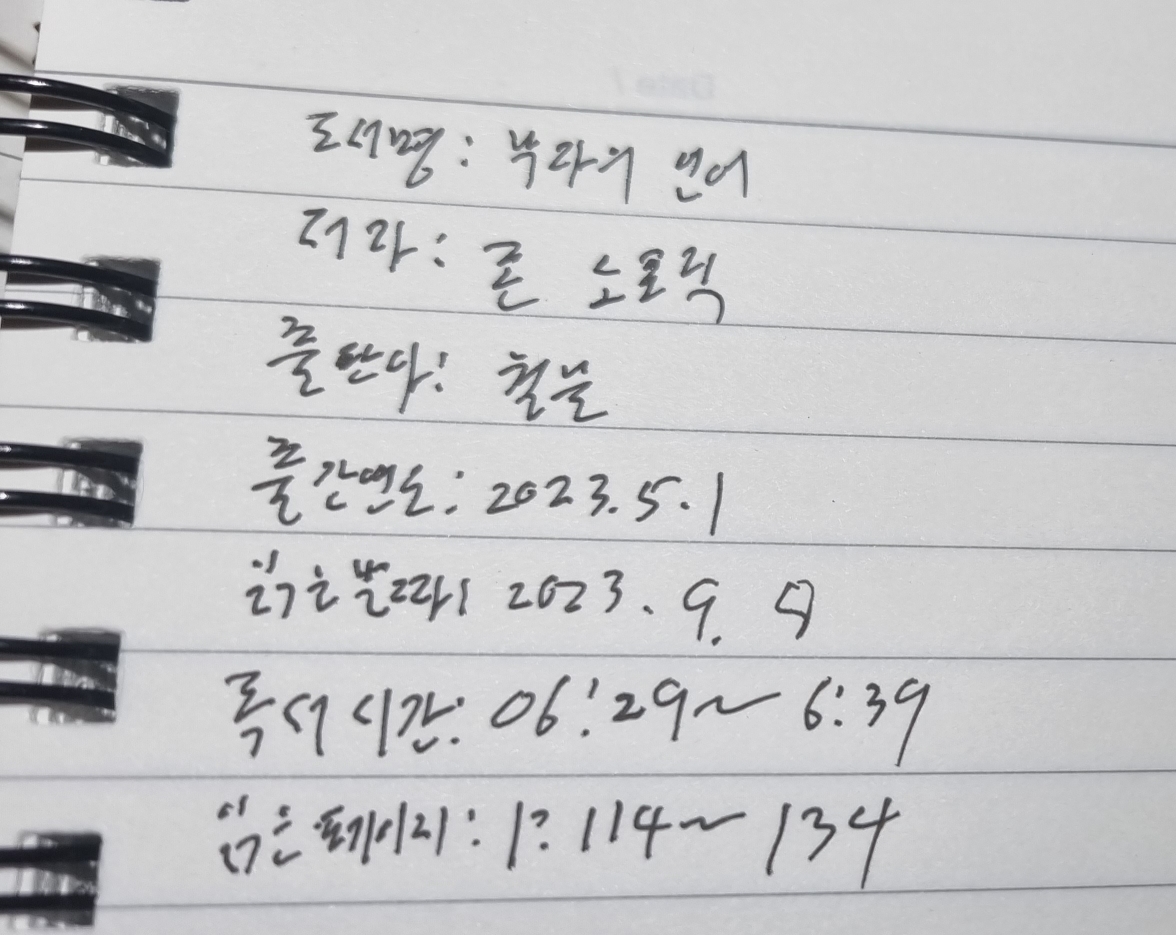 도서명: 부자의 언어
저자: 존 소포릭
출판사: 윌북
출간연도: 2023.5.1
읽은 날짜: 2023. 9. 9
독서 시간: 06:29~ 6:39
읽은 페이지: P. 114~134